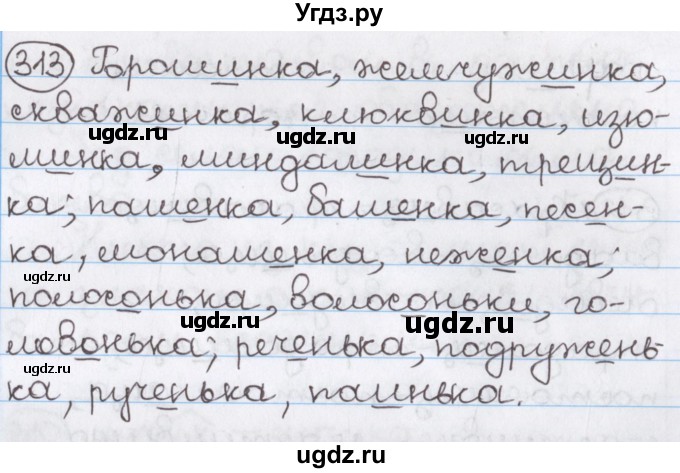 Угдз.ру
313 Горошинка, жемчужинка,
скважинка, клюквинка, изю-
минка, миндалинка, трещин-
ка; пашенка, башенка, песен-
ка, монашенка, неженка;
полосонька, волосоньки, го-
ловонька; реченька, подружень-
ка, рученька, паинька.
ugdz.ru
ugdz.ru
ugdz.ru
ugdz.ru
ugdz.ru
ugdz.ru
ugdz.ru
ugdz.ru
ugdz.ru
Угдз.ру